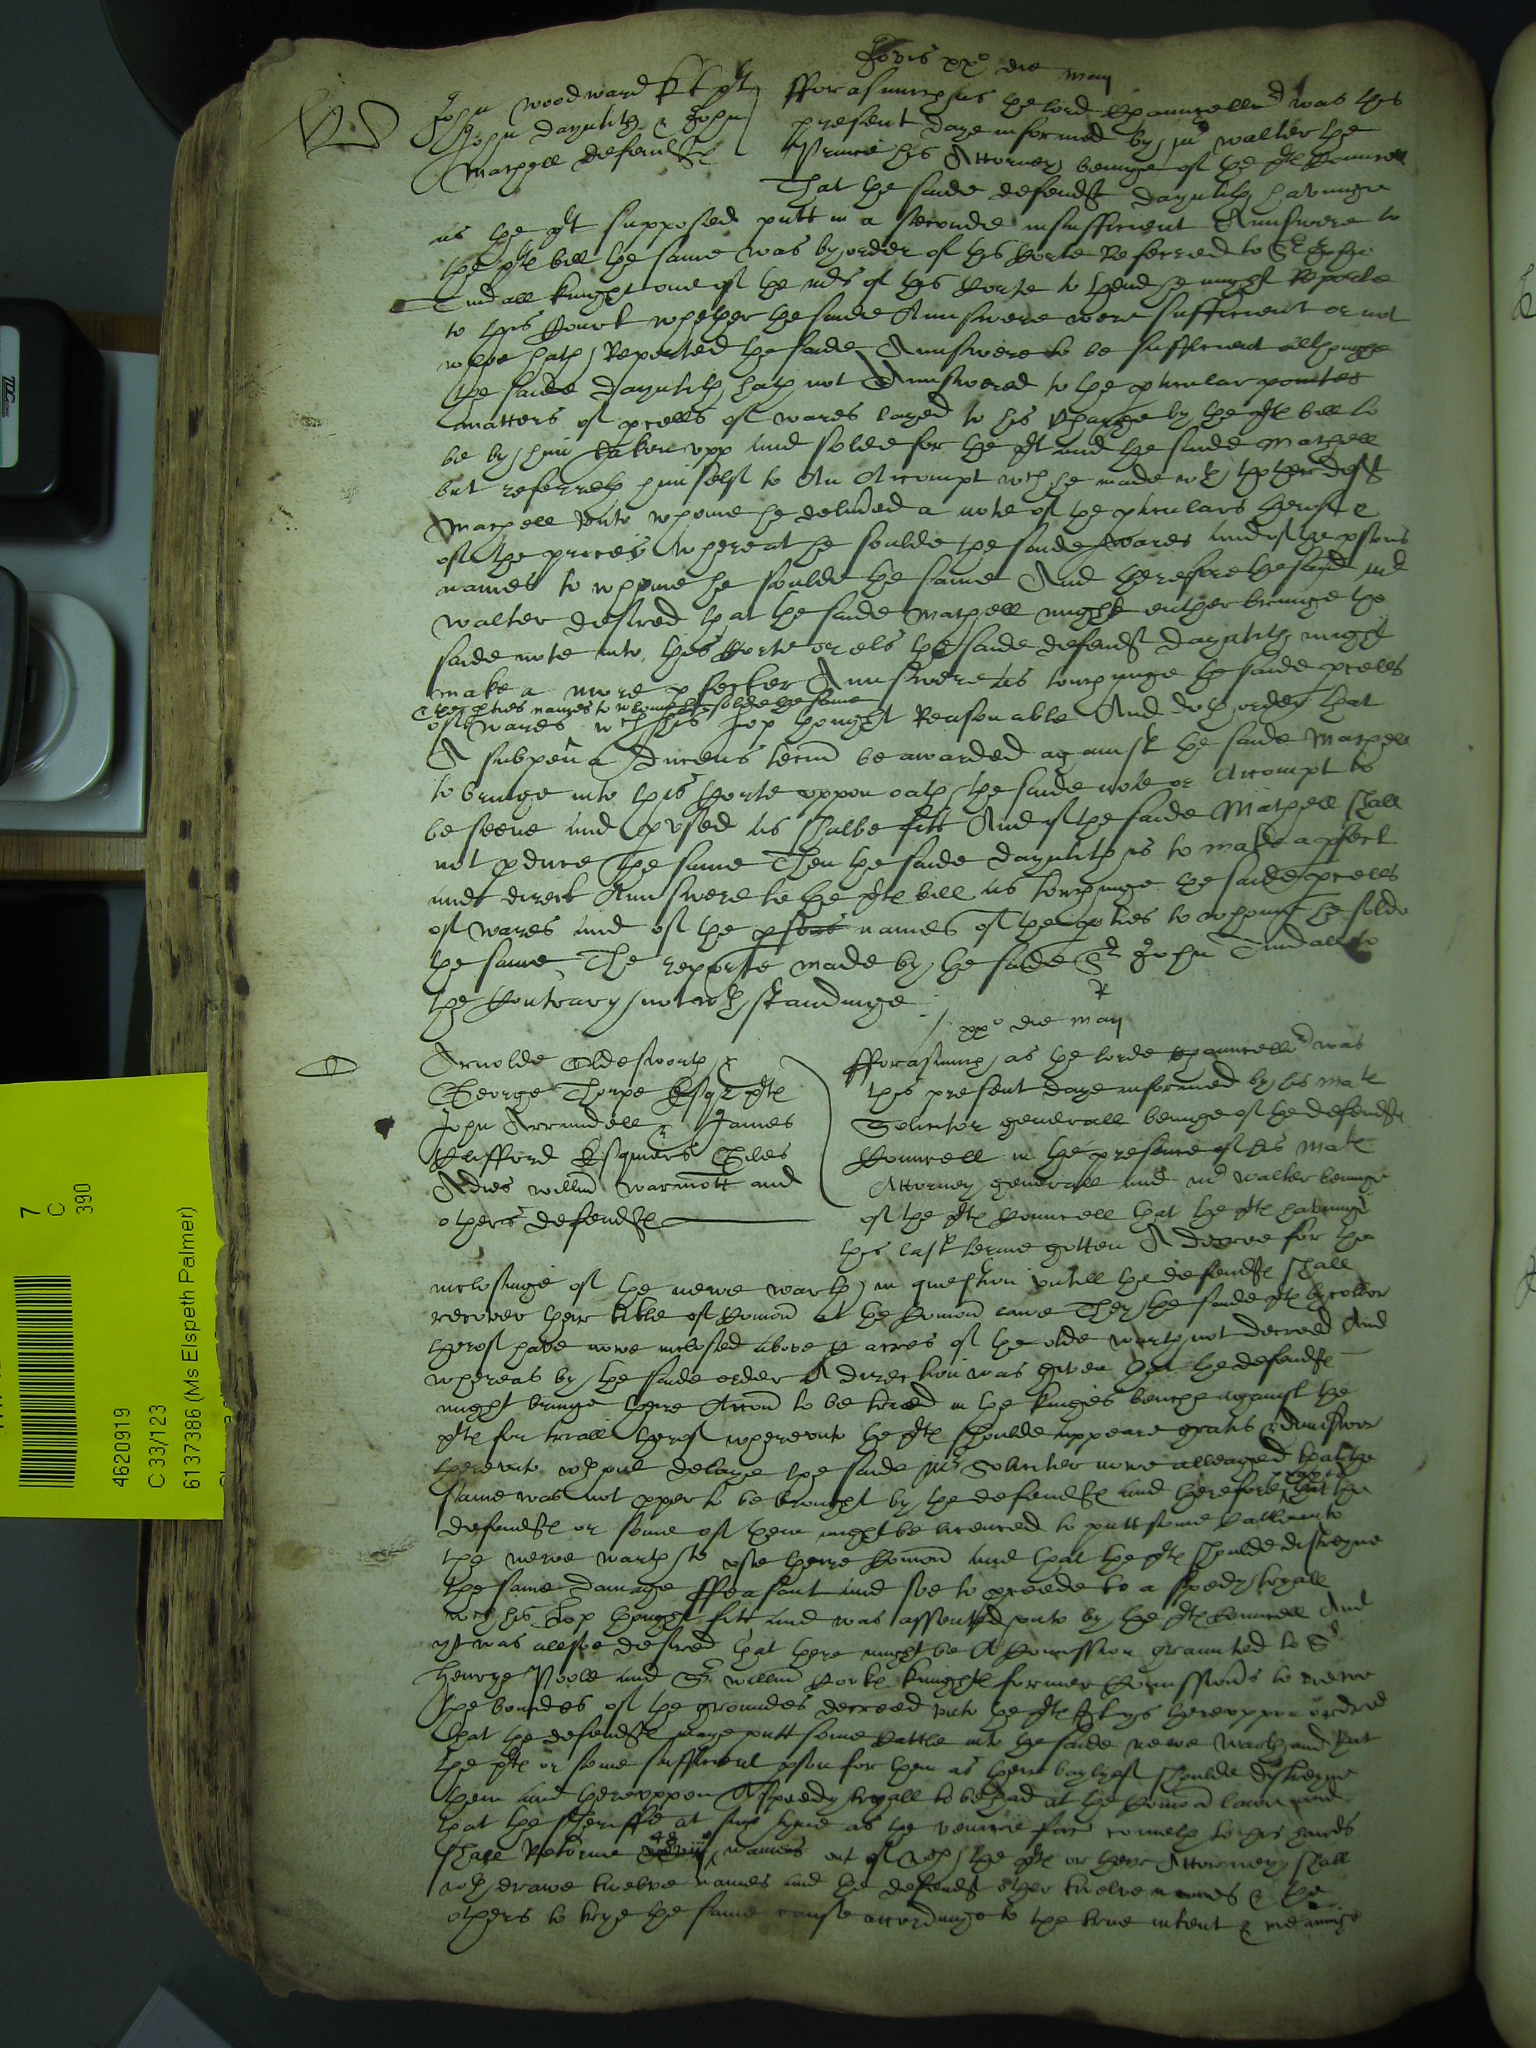 Jovis xxº die Maij
John Woodward Kt plt
John Dayntith & John
Mathell defendtes
fforasmuch as the lord Chauncellor was this
present daye informed by Mr Walter the
Prince his Attorney beinge of the plts Councell
That the saide defendt Dayntith havinge
as the plt supposed putt in a seconde insufficient Aunswere to
the plts bill the same was by order of this Corte Referred to Sr John
Tindall knight one of the mrs of this Corte to thend he might Reporte
to this Court whether the saide Aunswere were sufficient or not
whoe hath Reported the saide Aunswere to be sufficient althoughe
the saide Dayntith hath not Aunswered to the pticular pointes
matters of pcells of wares layed to his Charge by the plts bill to
be by him taken upp and solde for the plt and the saide Mathell
but referreth himself to An Accompt wch he made wth thother deft
Mathell unto whome he delivred a note of the pticulars therof &
of the prices whereat he soulde the saide wares and of the psons
names to whome he soulde the same And therefore the said mr
Walter desired that the saide Mathell might either bringe the
saide note into this Corte or els the saide defendt Dayntith might
make a more pfecter Aunswere as touchinge the saide pcells
the pties names to whome he solde the same
of wares wch his Lop thought Reasonable And doth order that
A subpena Ducens tecum be awarded against the saide Mathell
to bringe into this Corte uppon oath the saide note or Accompt to
be seene and pused as shalbe fitt And if the saide Mathell shall
not pduce the same Then the saide Dayntith is to make a pfect
and direct Aunswere to the plts bill as touchinge the saide pcells
of wares and of the psons names of the pties to whome he solde
the same The reporte made by the saide Sr John Tindall to
the Contrary notwthstandinge
xxº die Maij
Arnolde Oldesworth &
George Thorpe Esqrs plts
John Arrundell & James
Clifford Esquiers Giles
Adies willm Warmott and
others defendtes
fforasmuch as the lorde Chauncellor was
this present daye informed by his Mats
Solicitor generall beinge of the defendtes
Councell in the presence of his Mats
Attorney generall and mr Walter beinge
of the plts Councell that the plts havinge
this last terme gotten A decree for the
inclosinge of the newe warth in question untill the defendtes shall
recover their title of Comon at the Comon lawe They the saide plts by collor
therof have nowe inclosed above acres of the olde warth not decreed And
whereas by the saide order A direction was given that the defendtes
might bringe there Accon to be tried in the kinges benche against the
plts for triall therof wherevnto the plts shoulde appeare gratis & aunswere
therevnto wthout delaye the saide Mr Solicitor nowe alleaged that the
same was not pper to be brought by the defendtes and therefore prayed that the
defendtes or some of them might be licenced to putt some Cattle into
the newe warth to use theire Comon and that the plts shoulde distreyne
the same Damage ffeasant and soe to pceede to a speedy tryall
wch his Lop thought fitt and was assented unto by the plts Councell And
yt was allsoe desired that there might be A Comission graunted to Sr
Henrye Poole and Sr willm Cooke knights former Comissionrs to viewe
the boundes of the groundes decreed unto the plts It is thereuppon ordred
that the defendtes maye putt some Cattle into the saide newe warth and that
the plts or some sufficient pson for them as there baylyef shoulde distreyne
them and thereuppon A speedy tryall to be had at the Comon lawe and
that the Sheriffe at such tyme as the venire fac cometh to his hands
shall Retorne 48 names out of wch the plts or there Attorney shall
wthdrawe twelve names and the defendt other twelve names & the
others to trye the same cause accordinge to the true intent & meaninge
7
C
390
4620919
C 33/123
6137386 (Ms Elspeth Palmer)